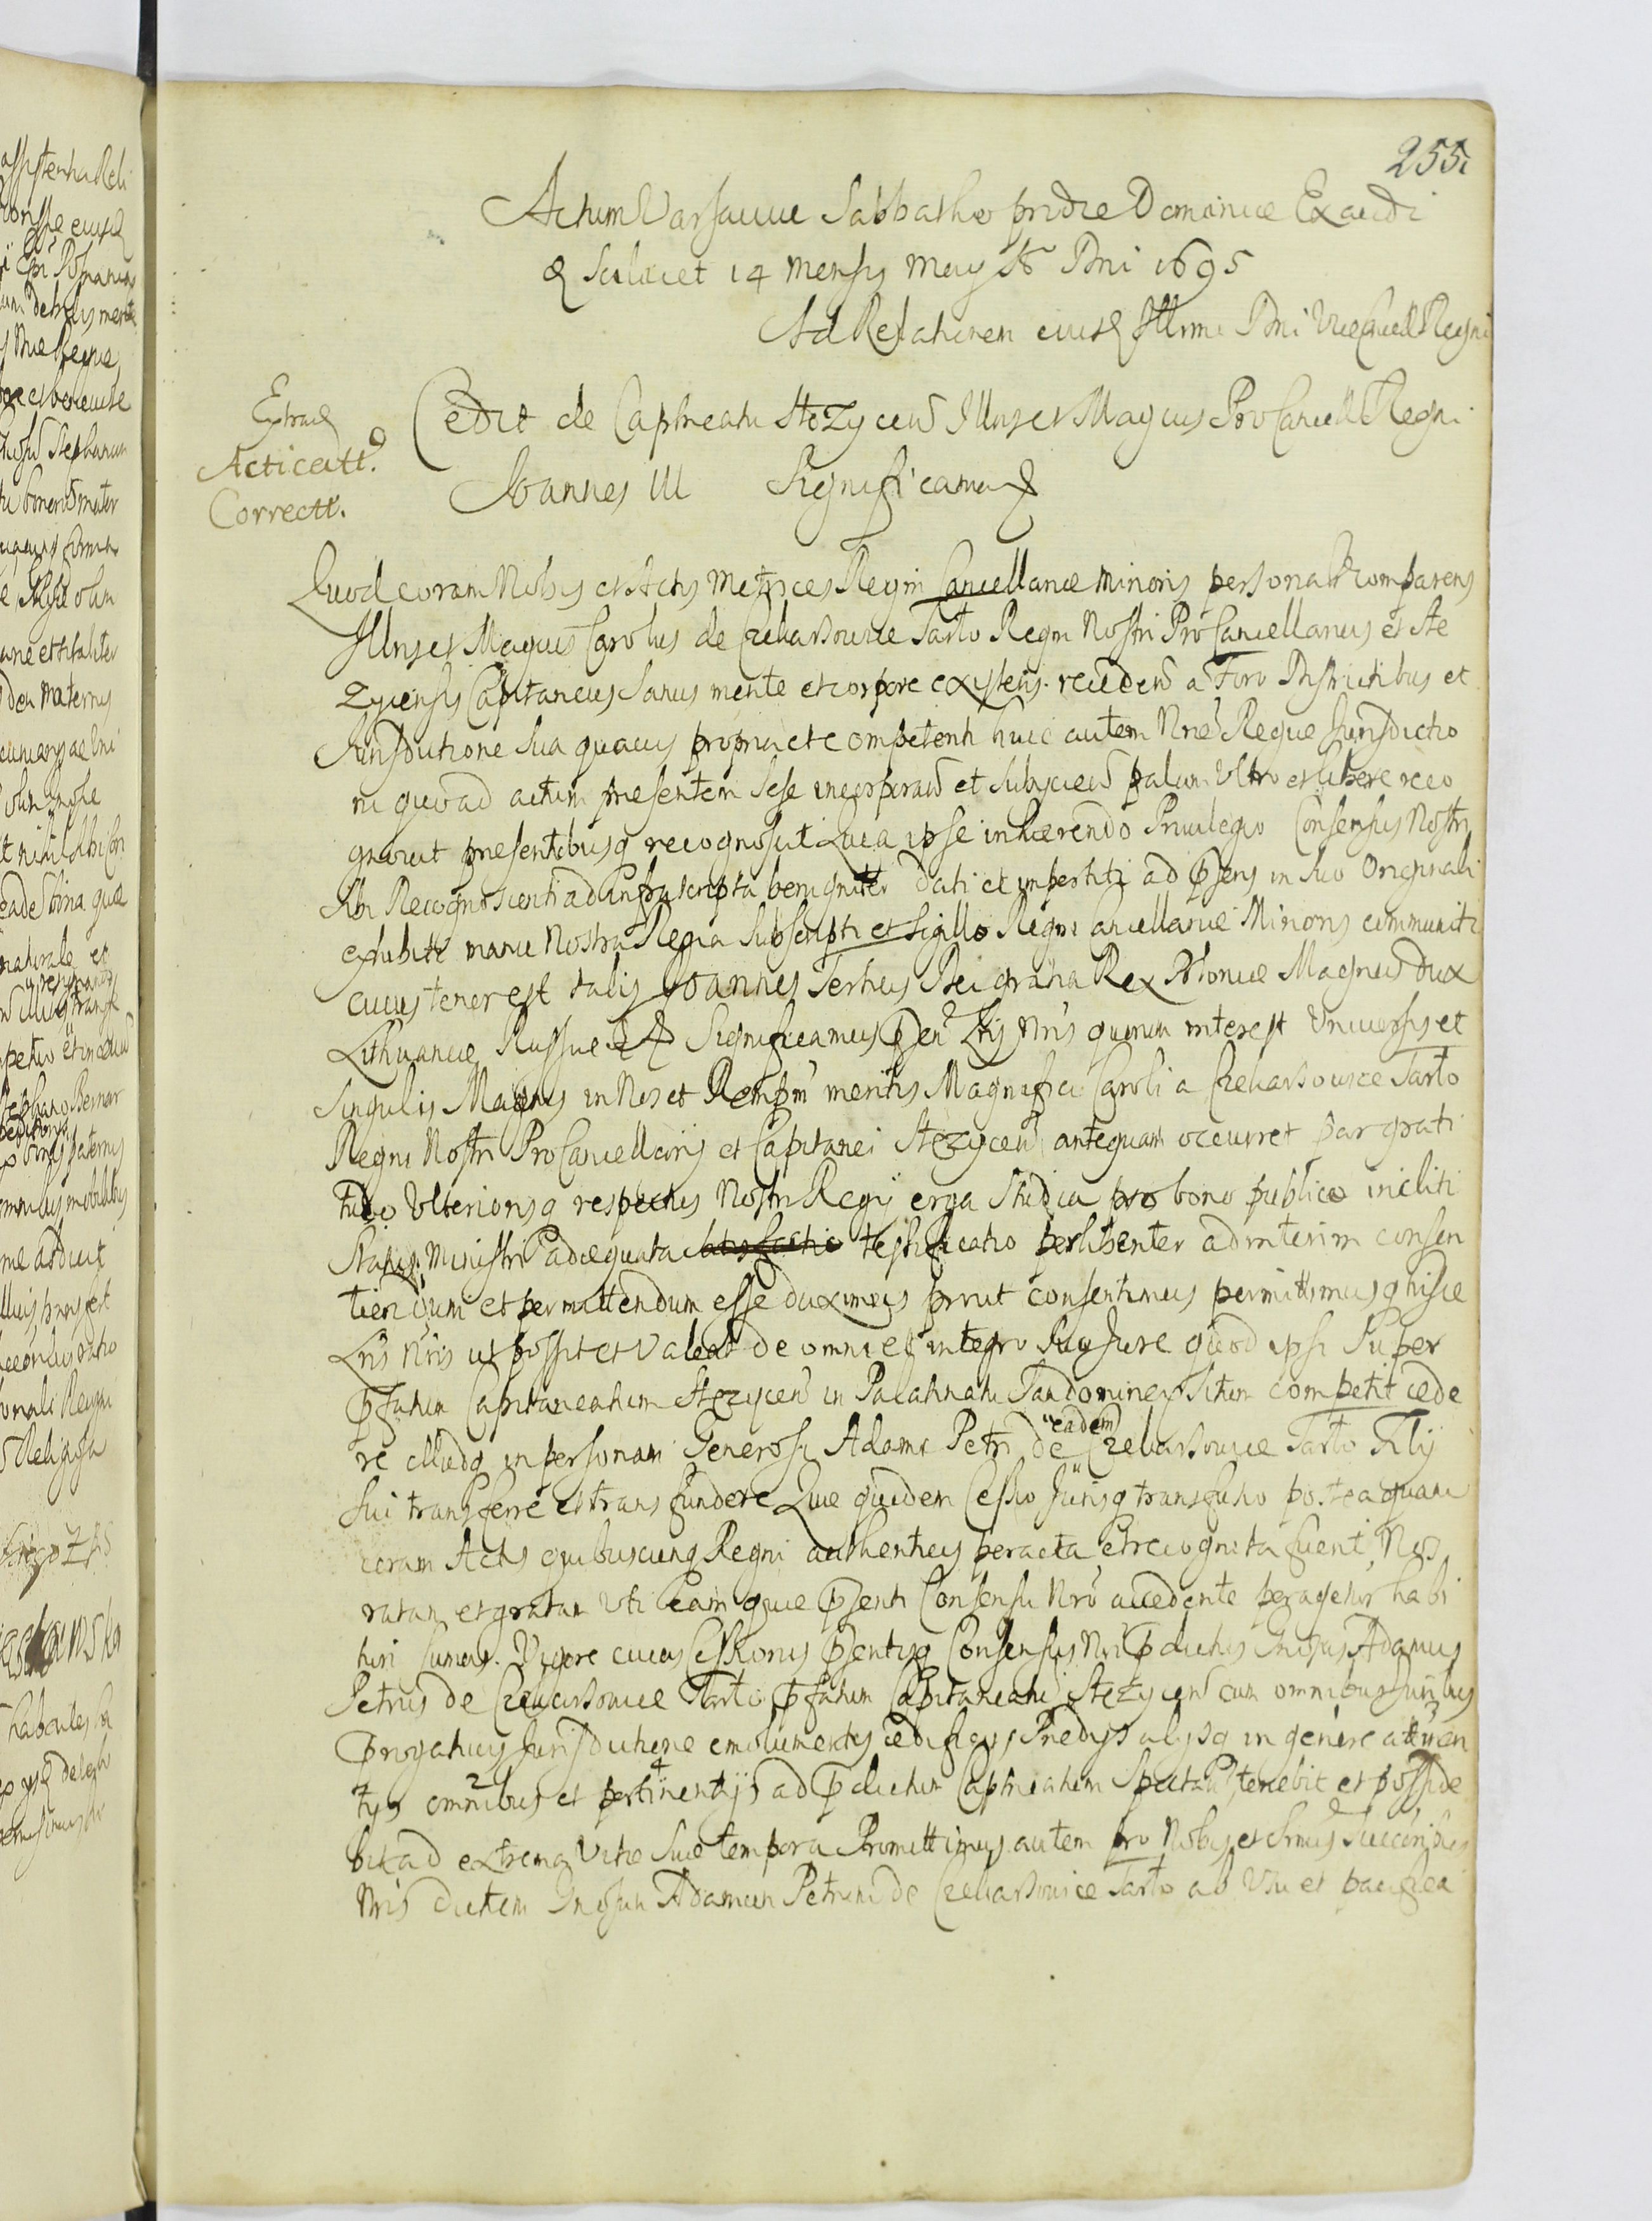 255
Actum Varsaviae Sabbatho pridie Dominicae Exaudi
scilicet 14 mensis Maij Ao Dni 1695
Ad Relationem eiusd Illrmi Dni Vicecancell Regni
Extrad
Acticatt.
Correctt.
Cedit de Captneatu Stezycen Illris et Magcus ProCancell Regni
Joannes III Significamus
Quod coram Nobis et Actis Metrices Regni Cancellariae Minoris personalr comparens
Illris et Magcus Carolus de Czekarzowice Tarło Regni Nostri ProCancellarius et Ste
zycensis Capitaneus sanus mente et corpore existens. recedens a Foro Districtibus et
Jurisdictione sua quavis propria et competenti huic autem Nrae Regiae Jurisdictio
ni quoad actum praesentem sese incorporans et subijciens palam Vltro et libere reco
gnovit praesentibusq recognoscit Quia ipse inhaerendo Privilegio Consensus Nostri
Sibi Recognoscenti ad infrascripta benigniter dati et impertiti ad praesens in suo Originali
exhibiti manu Nostra Regia subscripti et sigillo Regni Cancellariae Minoris communiti
cuius tenor est talis Joannes Tertius Dei gratia Rex Poloniae Magnus Dux
Lithuaniae Russiae Significamus praesen Lris Nris quorum interest Vniversis et
Singulis Magnis in Nos et Rempm meritis Magnifici Caroli a Czekarzowice Tarło
Regni Nostri ProCancellarij et Capitanei Stezycen antequam occurret par grati
tudo Vlteriorisq respectus Nostri Regij erga studia pro bono publico incliti
Status Ministri adaequata satisfactio testificatio perlibenter ad interim consen
tiendum et permittendum esse duximus prout consentimus permittimusq hisce
Lris Nris ut possit et valeat de omni et integro suo Jure quod ipsi super
praefatum Capitaneatum Stezycen in Palatinatu Sandomirien situm competit cede
re illudq in personam Generosi Adami Petri de eadem Czekarzowice Tarło Filij
sui transferre et transfundere Quae quidem Cessio Jurisq transfusio posteaquam
coram Actis quibuscunq Regni authenticis peracta et recognita fuerit Nos
ratam et gratam Vti Eam quae praesenti Consensu Nro accedente peragetur habi
turi sumus. Vigore cuius Cessionis praesentisq Consensus Nri praedictus Gnosus Adamus
Petrus de Czekarzowice Tarło praefatum Capitaneatum Stezycen cum omnibus Juribus
praerogativis Jurisdictione emolumentis aedificijs Praedijs alijsq in genere attinen
tijs 2 omnibus et 4 pertinentijs ad praedictum Captneatum spectan tenebit et posside
bit ad extrema Vitae suae tempora Promittimus autem pro Nobis et Srmis Successoribus
Nris dictum Gnosum Adamum Petrum de Czekarzowice Tarło ab Vsu et pacifica